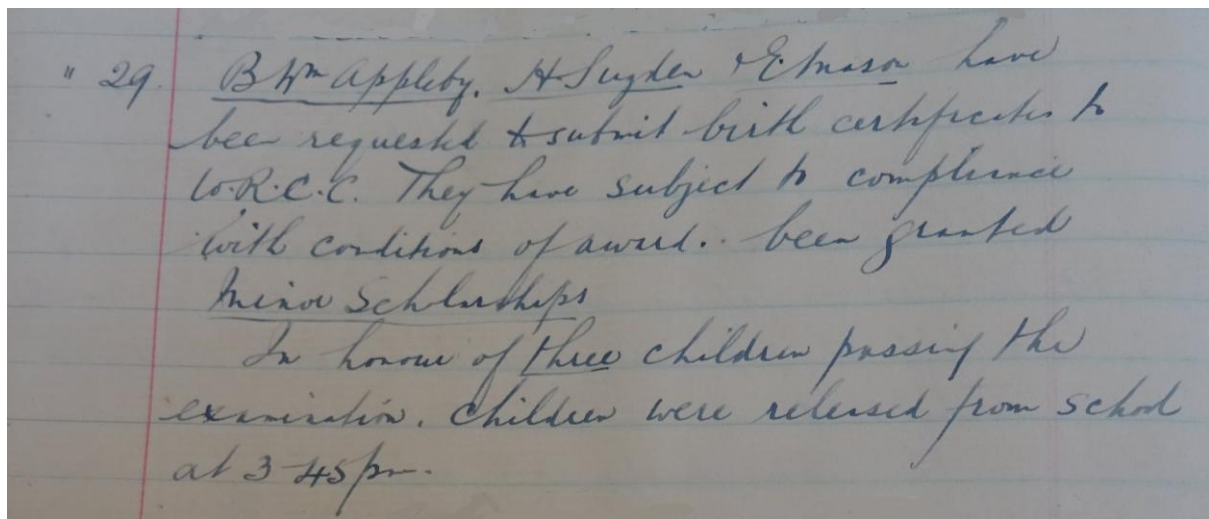 " 29. B Wm Appleby. H Sugden & E Mason have
been requested to submit birth certificates to
W.R.C.C. They have subject to compliance
with conditions of award.. been granted
Minor Scholarships
In honour of three children passing the
examination. Children were released from school
at 3-45 pm.